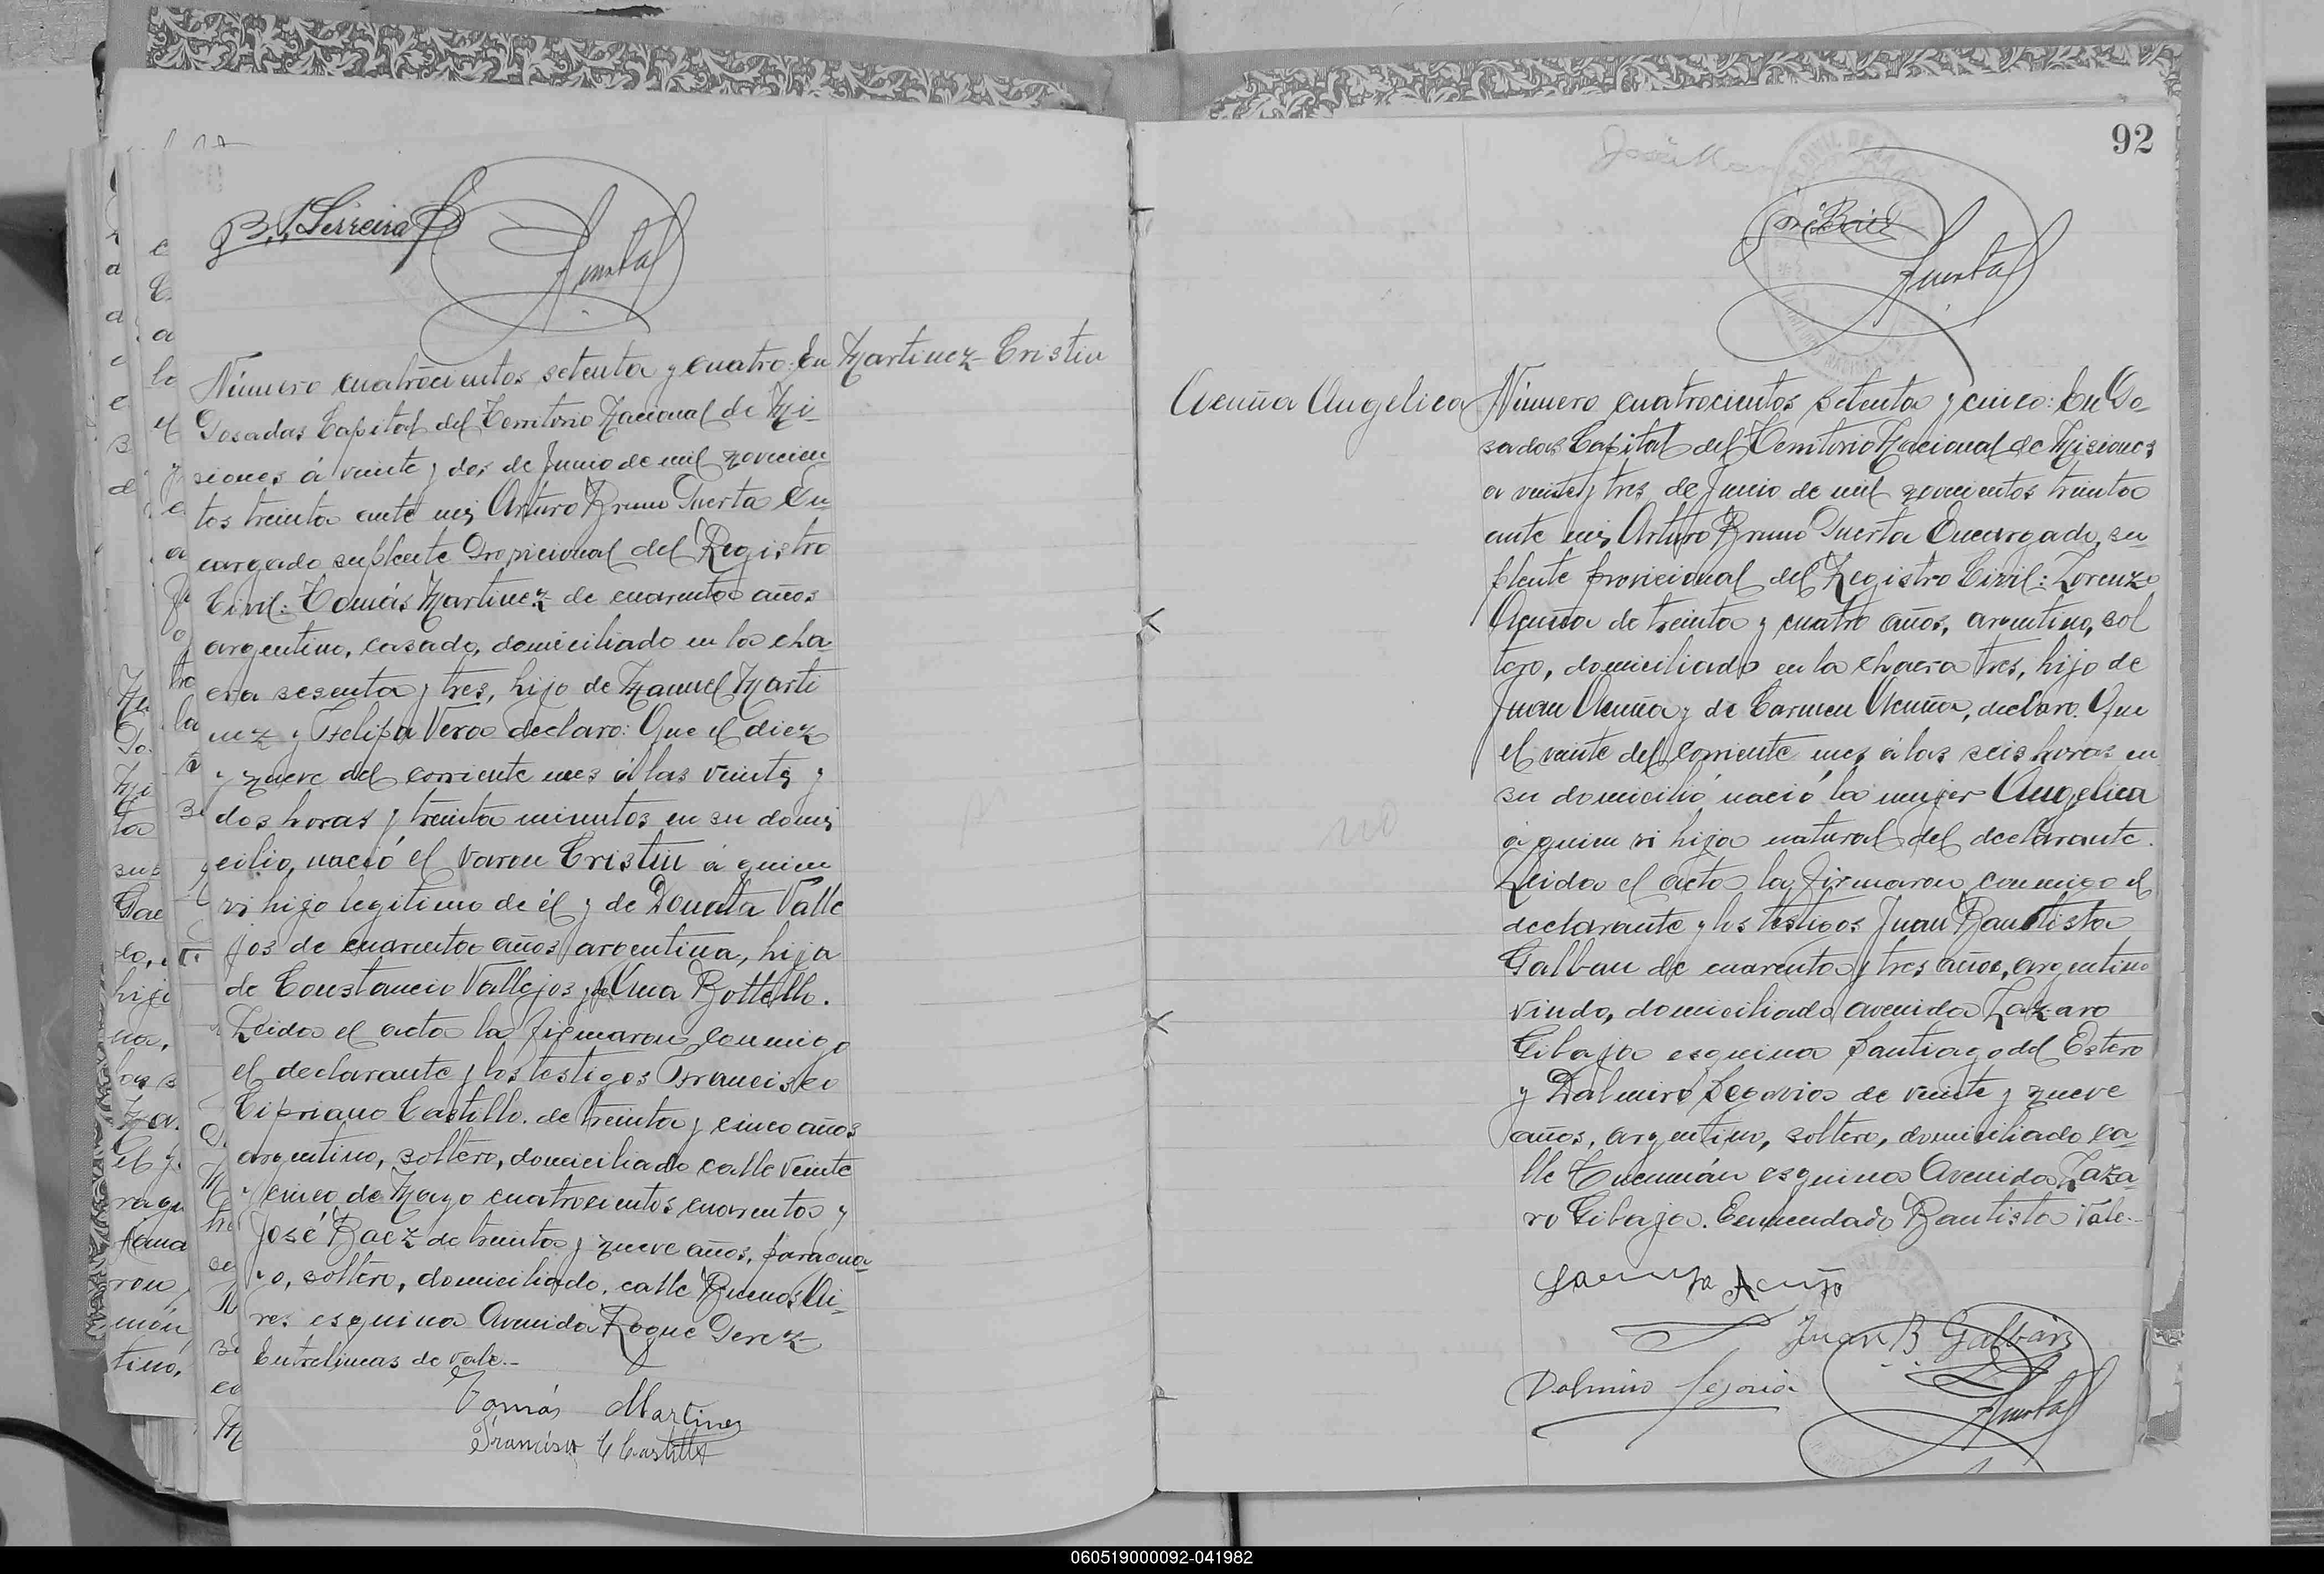 B. S. Ferreira
Puerta
Número cuatrocientos setenta y cuatro: En
Martinez Cristin
Posadas Capital del Territorio Nacional de Mi-
siones á veinte y dos de Junio de mil novecien
tos treinta ante mi, Arturo Bruno Puerta En-
cargado suplente Provicional del Registro
Civil: Tomás Martinez de cuarenta años
argentino, casado, domiciliado en la cha-
cra sesenta y tres, hijo de Manuel Marti
nez y Felipa Vera declaro: Que el diez
y nueve del corriente mes á las veinte y
dos horas y treinta minutos en su domi
cilio, nació el varon Cristin á quien
vi hijo legitimo de él y de Donata Valle
jos de cuarenta años argentina, hija
de Constancio Vallejos y de Ana Bottello.
Leida el acta la firmaron conmigo
el declarante y los testigos Francisco
Cipriano Castillo. de treinta y cinco años
argentino, soltero, domiciliado calle veinte
y cinco de Mayo cuatrocientos cuarenta y
José Baez de treinta y nueve años, paragua-
yo, soltero, domiciliado, calle Buenos Ai-
res esquina Avenida Roque Perez
Entrelineas de vale.-
Tomás Martinez
Francisco C Castillo
92
José Baez
Puerta
Acuña Angelica
Número cuatrocientos setenta y cinco: En Po-
sadas Capital del Territorio Nacional de Misiones
a veinte y tres de Junio de mil novecientos treinta
ante mi, Arturo Bruno Puerta Encargado, su-
plente provicional del Registro Civil: Lorenzo
Acuña de treinta y cuatro años, argentino, sol
tero, domiciliado en la chacra tres, hijo de
Juan Acuña y de Carmen Acuña, declaro. Que
el veinte del corriente mes á las seis horas en
su domicilio nació la mujer Angelica
á quien vi hija natural del declarante.
Leida el acta la firmaron conmigo el
declarante y los testigos Juan Bautista
Galban de cuarenta y tres años, argentino
viudo, domiciliado avenida Lazaro
Gibaja esquina Santiago del Estero
y Dalmiro Segovia de veinte y nueve
años, argentino, soltero, domiciliado ca-
lle Tucumán esquina Avenida Laza-
ro Gibaja. Enmendado Bautista Vale.-
no
Acuña
Juan B Galban
Dalmiro Segovia
Puerta
060519000092-041982